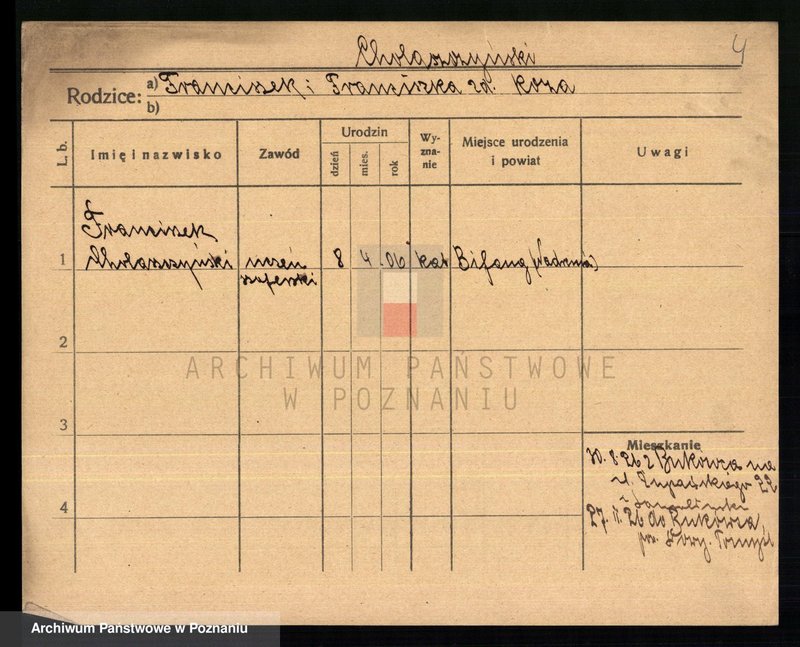 4
Chołaszczyński
Rodzice: a) Franciszek i Franciszka zd. Koza
b)
L. b.
Imię i nazwisko
Zawód
Urodzin
dzień
mies.
rok
Wy-
zna-
nie
Miejsce urodzenia
i powiat
Uwagi
1
Franciszek
Chołaszczyński
uczeń
szoferski
8
4
06
kat
Bifang (Nadrenia)
2
3
4
Mieszkanie
30.8.26 z Bukowca na
ul. Żupańskiego 22
27. 26 do Bukowca,
pow. Nowy Tomyśl
ARCHIWUM PAŃSTWOWE
W POZNANIU
Archiwum Państwowe w Poznaniu